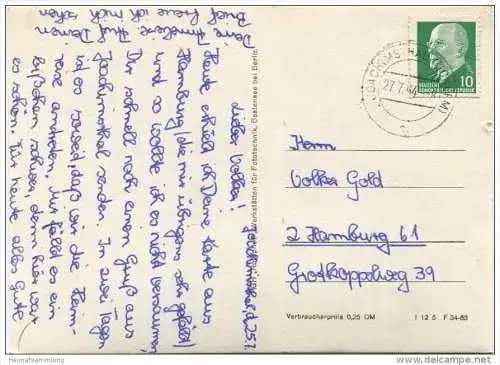 Joachimsthal, d. 25.7.
Lieber Volker!
Heute erhielt ich Deine Karte aus
Hamburg (die mir übrigens sehr gefällt)
und so wollte ich es nicht versäumen
Dir schnell noch einen Gruß aus
Joachimsthal senden. In zwei Tagen
ist es soweit, daß wir die Heim-
reise antreten. Mir fällt es ein
bißchen schwer, denn hier war
es schön. Für heute alles Gute
Deine Anneliese. Auf Deinen
Brief freue ich mich schon
Werkstätten für Fototechnik, Bestensee bei Berlin
JOACHIMSTHAL
27.7.64
DEUTSCHE
DEMOKRATISCHE REPUBLIK
10
Herrn
Volker Gold
2 Hamburg 61
Grotkoppelweg 39
Verbraucherpreis 0,25 DM I 12 5 F 34-63
Heimatsammlung
delcampe.net